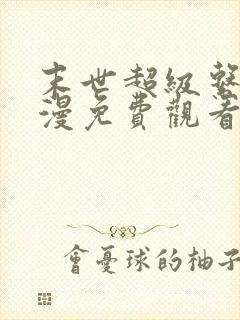 末世超級系
漫免費觀看
會憂球的柚子